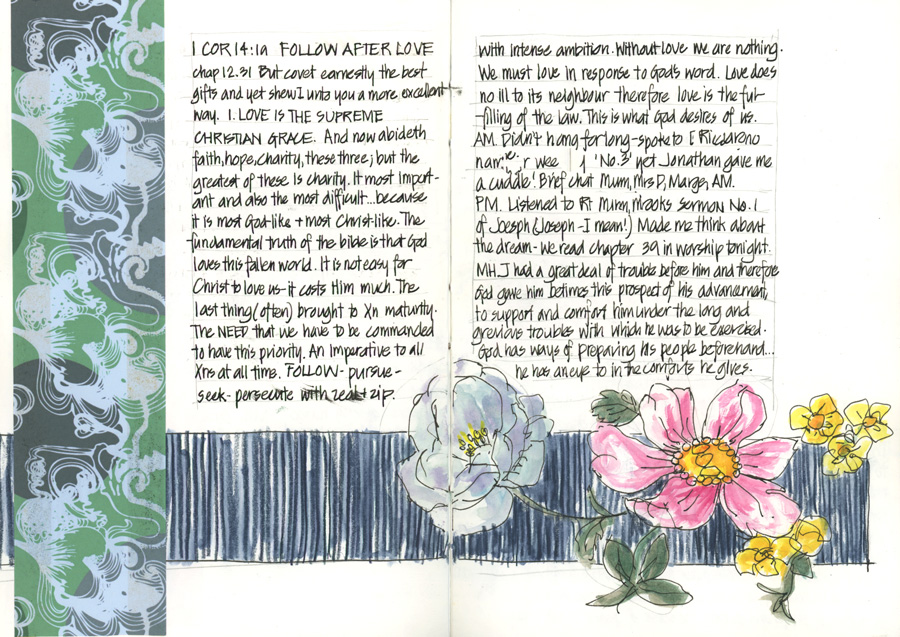 1 COR 14:1a FOLLOW AFTER LOVE
chap 12.31 But covet earnestly the best
gifts and yet shew I unto you a more excellent
way. 1. LOVE IS THE SUPREME
CHRISTIAN GRACE. And now abideth
faith, hope, charity, these three; but the
greatest of these is charity. It most import-
ant and also the most difficult...because
it is most God-like + most Christ-like. The
fundamental truth of the bible is that God
loves this fallen world. It is not easy for
Christ to love us - it costs Him much. The
last thing (often) brought to Xn maturity.
The NEED that we have to be commanded
to have this priority. An Imperative to all
Xns at all time. FOLLOW - pursue -
seek - persecute with zeal + zip.
with intense ambition. Without love we are nothing.
We must love in response to God's word. Love does
no ill to its neighbour therefore love is the ful-
filling of the law. This is what God desires of us.
AM. Didn't hang for long - spoke to
'No. 3' yet Jonathan gave me
a cuddle! Brief chat Mum, Mrs D, Marge, AM.
PM. Listened to Rt Murry sermon No. 1
of Joesph (Joseph - I mean!) Made me think about
the dream - we read chapter 39 in worship tonight.
MH. J had a great deal of trouble before him and therefore
God gave him betimes this prospect of his advancement,
to support and comfort him under the long and
grevious troubles with which he was to be exercised.
God has ways of preparing his people beforehand...
he has an eye to in the comforts he gives.